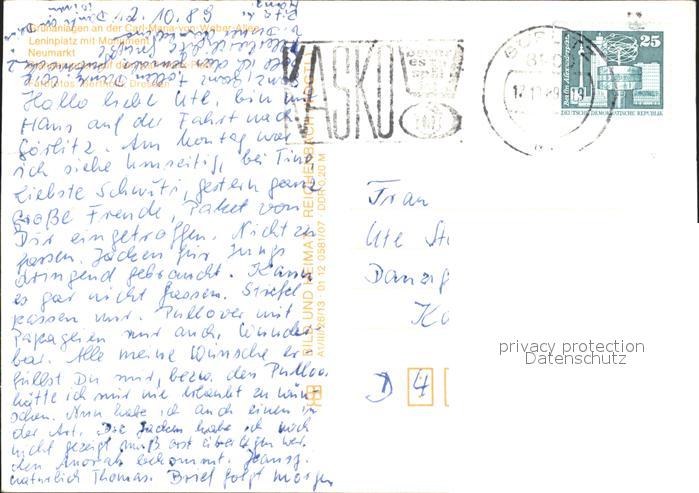 12.10.89
Grünanlagen an der Carl-Maria-von-Weber-Allee
Leninplatz mit Monument
Neumarkt
Hallo liebe Ute, bin mit
Hans auf der Fahrt nach
Görlitz. Am Montag war
ich siehe umseitig, bei Tino.
Liebste Schwiti, gestern ganz
große Freude, Paket von
Dir eingetroffen. Nicht zu
fassen. Jacken für Jungs
dringend gebraucht. Kann
es gar nicht fassen. Stiefel
passen mir. Pullover mit
Papageien mir auch, wunder-
bar. Alle meine Wünsche er-
füllst Du mir, bezw. den Pullov.
hätte ich mir nie erlaubt zu wün-
schen. Nun habe ich auch einen in
der Art. Die Jacken habe ich noch
nicht gezeigt, muß erst überlegen wer
den Anorak bekommt.
natürlich Thomas. Brief folgt morgen
BILD UND HEIMAT REICHENBACH (VOGTL)
A1/III/26/13 01 12 0581/07 DDR 0,20 M
KASKO
25
Berlin, Alexanderplatz
DEUTSCHE DEMOKRATISCHE REPUBLIK
Frau
Ute
Danzig
D 4
privacy protection
Datenschutz